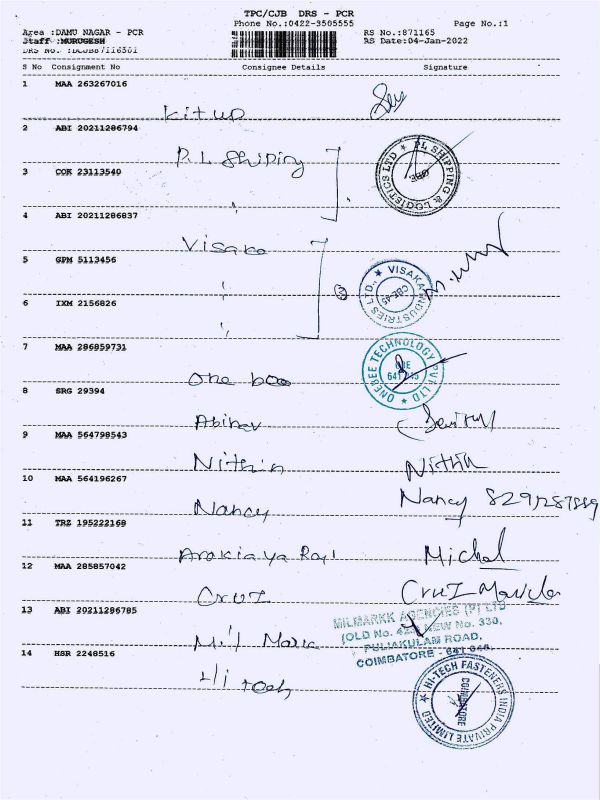 TPC/CJB DRS - PCR
Phone No.:0422-3505555 Page No.:1
Area :DAMU NAGAR - PCR RS No.:871165
Staff :MURUGESH RS Date:04-Jan-2022
DRS No. :
S No Consignment No Consignee Details Signature
1 MAA 263267016
Kitup
2 ABI 20211286794
P.L Shiping
PL SHIPPING & LOGISTICS LTD
CBE
3 COK 23113540
4 ABI 20211286837
Visaka
5 GPM 5113456
VISAKA INDUSTRIES LTD.,
CBE-45
6 IXM 2156826
7 MAA 286859731
One bee
ONEBEE TECHNOLOGY PVT LTD
CBE
641 045
8 SRG 29394
Abinav
9 MAA 564798543
Nithin Nithin
10 MAA 564196267
Nancy Nancy
11 TRZ 195222168
Arokiaya Raj Michal
12 MAA 285857042
Cruz Cruz
13 ABI 20211286785
MILMARKK AGENCIES (P) LTD
(OLD No. NEW No. 330,
PULIAKULAM ROAD,
COIMBATORE - 641 045
Mil Mark
14 HSR 2248516
Hi tech
HI-TECH FASTENERS INDIA PRIVATE LIMITED
COIMBATORE